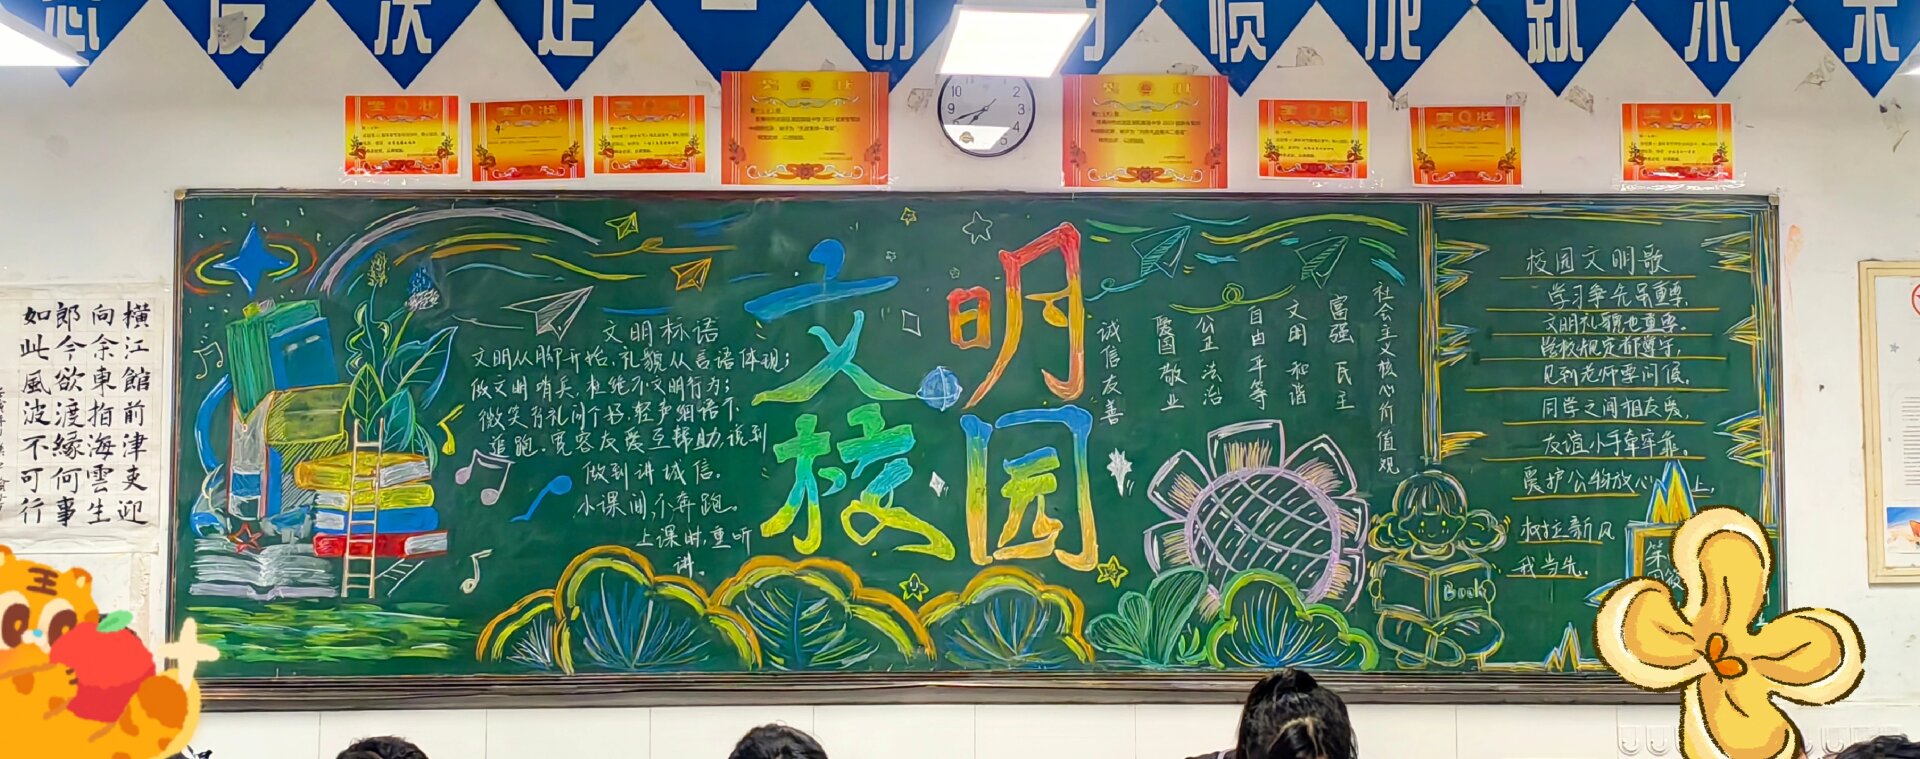 态度决定一切
习惯成就未来
奖状
奖状
奖状
奖状
奖状
奖状
奖状
奖状
横江館前津吏迎
向余東指海雲生
郎今欲渡緣何事
如此風波不可行
文明校园
文明标语
文明从脚开始,礼貌从言语体现;
做文明有关,杜绝不文明行为;
微笑有礼问个好,轻声细语不
追跑.宽容友爱互帮助,说到
做到讲诚信。
小课间,不奔跑。
上课时,重听
讲。
社会主义核心价值观
富强 民主
文明 和谐
自由 平等
公正 法治
爱国 敬业
诚信 友善
Book
校园文明歌
学习争先虽重要,
文明礼貌也重要。
学校规定都遵守,
见到老师要问候。
同学之间相友爱,
友谊小手牵牢靠。
爱护公物放心上,
树立新风
我当先。
王